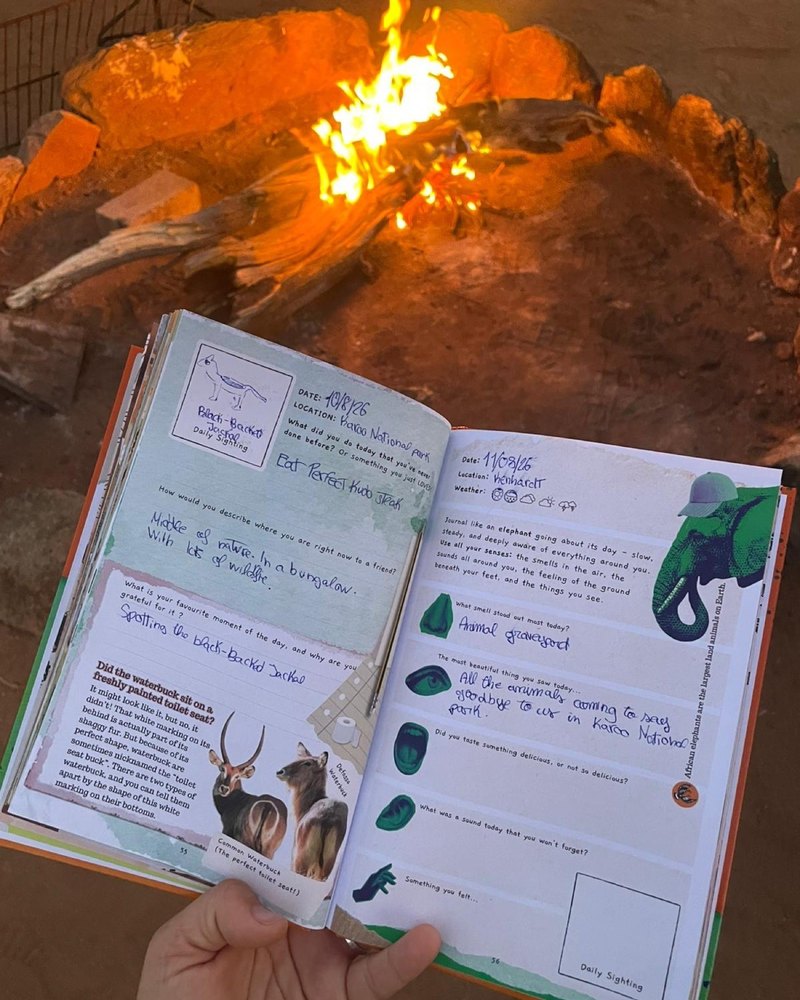 Black-Backed
Jackal
Daily Sighting
DATE: 10/8/26
LOCATION: Karoo National park
What did you do today that you've never
done before? Or something you just loved
Eat Perfect Kudo Steak
How would you describe where you are right now to a friend?
Middle of nature. In a bungalow.
With lots of wildlife.
What is your favourite moment of the day, and why are you
grateful for it?
Spotting the black-backed Jackal
Did the waterbuck sit on a
freshly painted toilet seat?
It might look like it, but no, it
didn't! That white marking on its
behind is actually part of its
shaggy fur. But because of its
perfect shape, waterbuck are
sometimes nicknamed the "toilet
seat buck". There are two types of
waterbuck, and you can tell them
apart by the shape of this white
marking on their bottoms.
Defassa
Waterbuck
Common Waterbuck
(The perfect toilet seat!)
55
Date: 11/08/26
Location: Kenhardt
Weather:
Journal like an elephant going about its day – slow,
steady, and deeply aware of everything around you.
Use all your senses: the smells in the air, the
sounds all around you, the feeling of the ground
beneath your feet, and the things you see.
What smell stood out most today?
Animal graveyard
The most beautiful thing you saw today...
All the animals coming to say
goodbye to us in Karoo National
park.
Did you taste something delicious, or not so delicious?
What was a sound today that you won't forget?
Something you felt...
Daily Sighting
56
African elephants are the largest land animals on Earth.